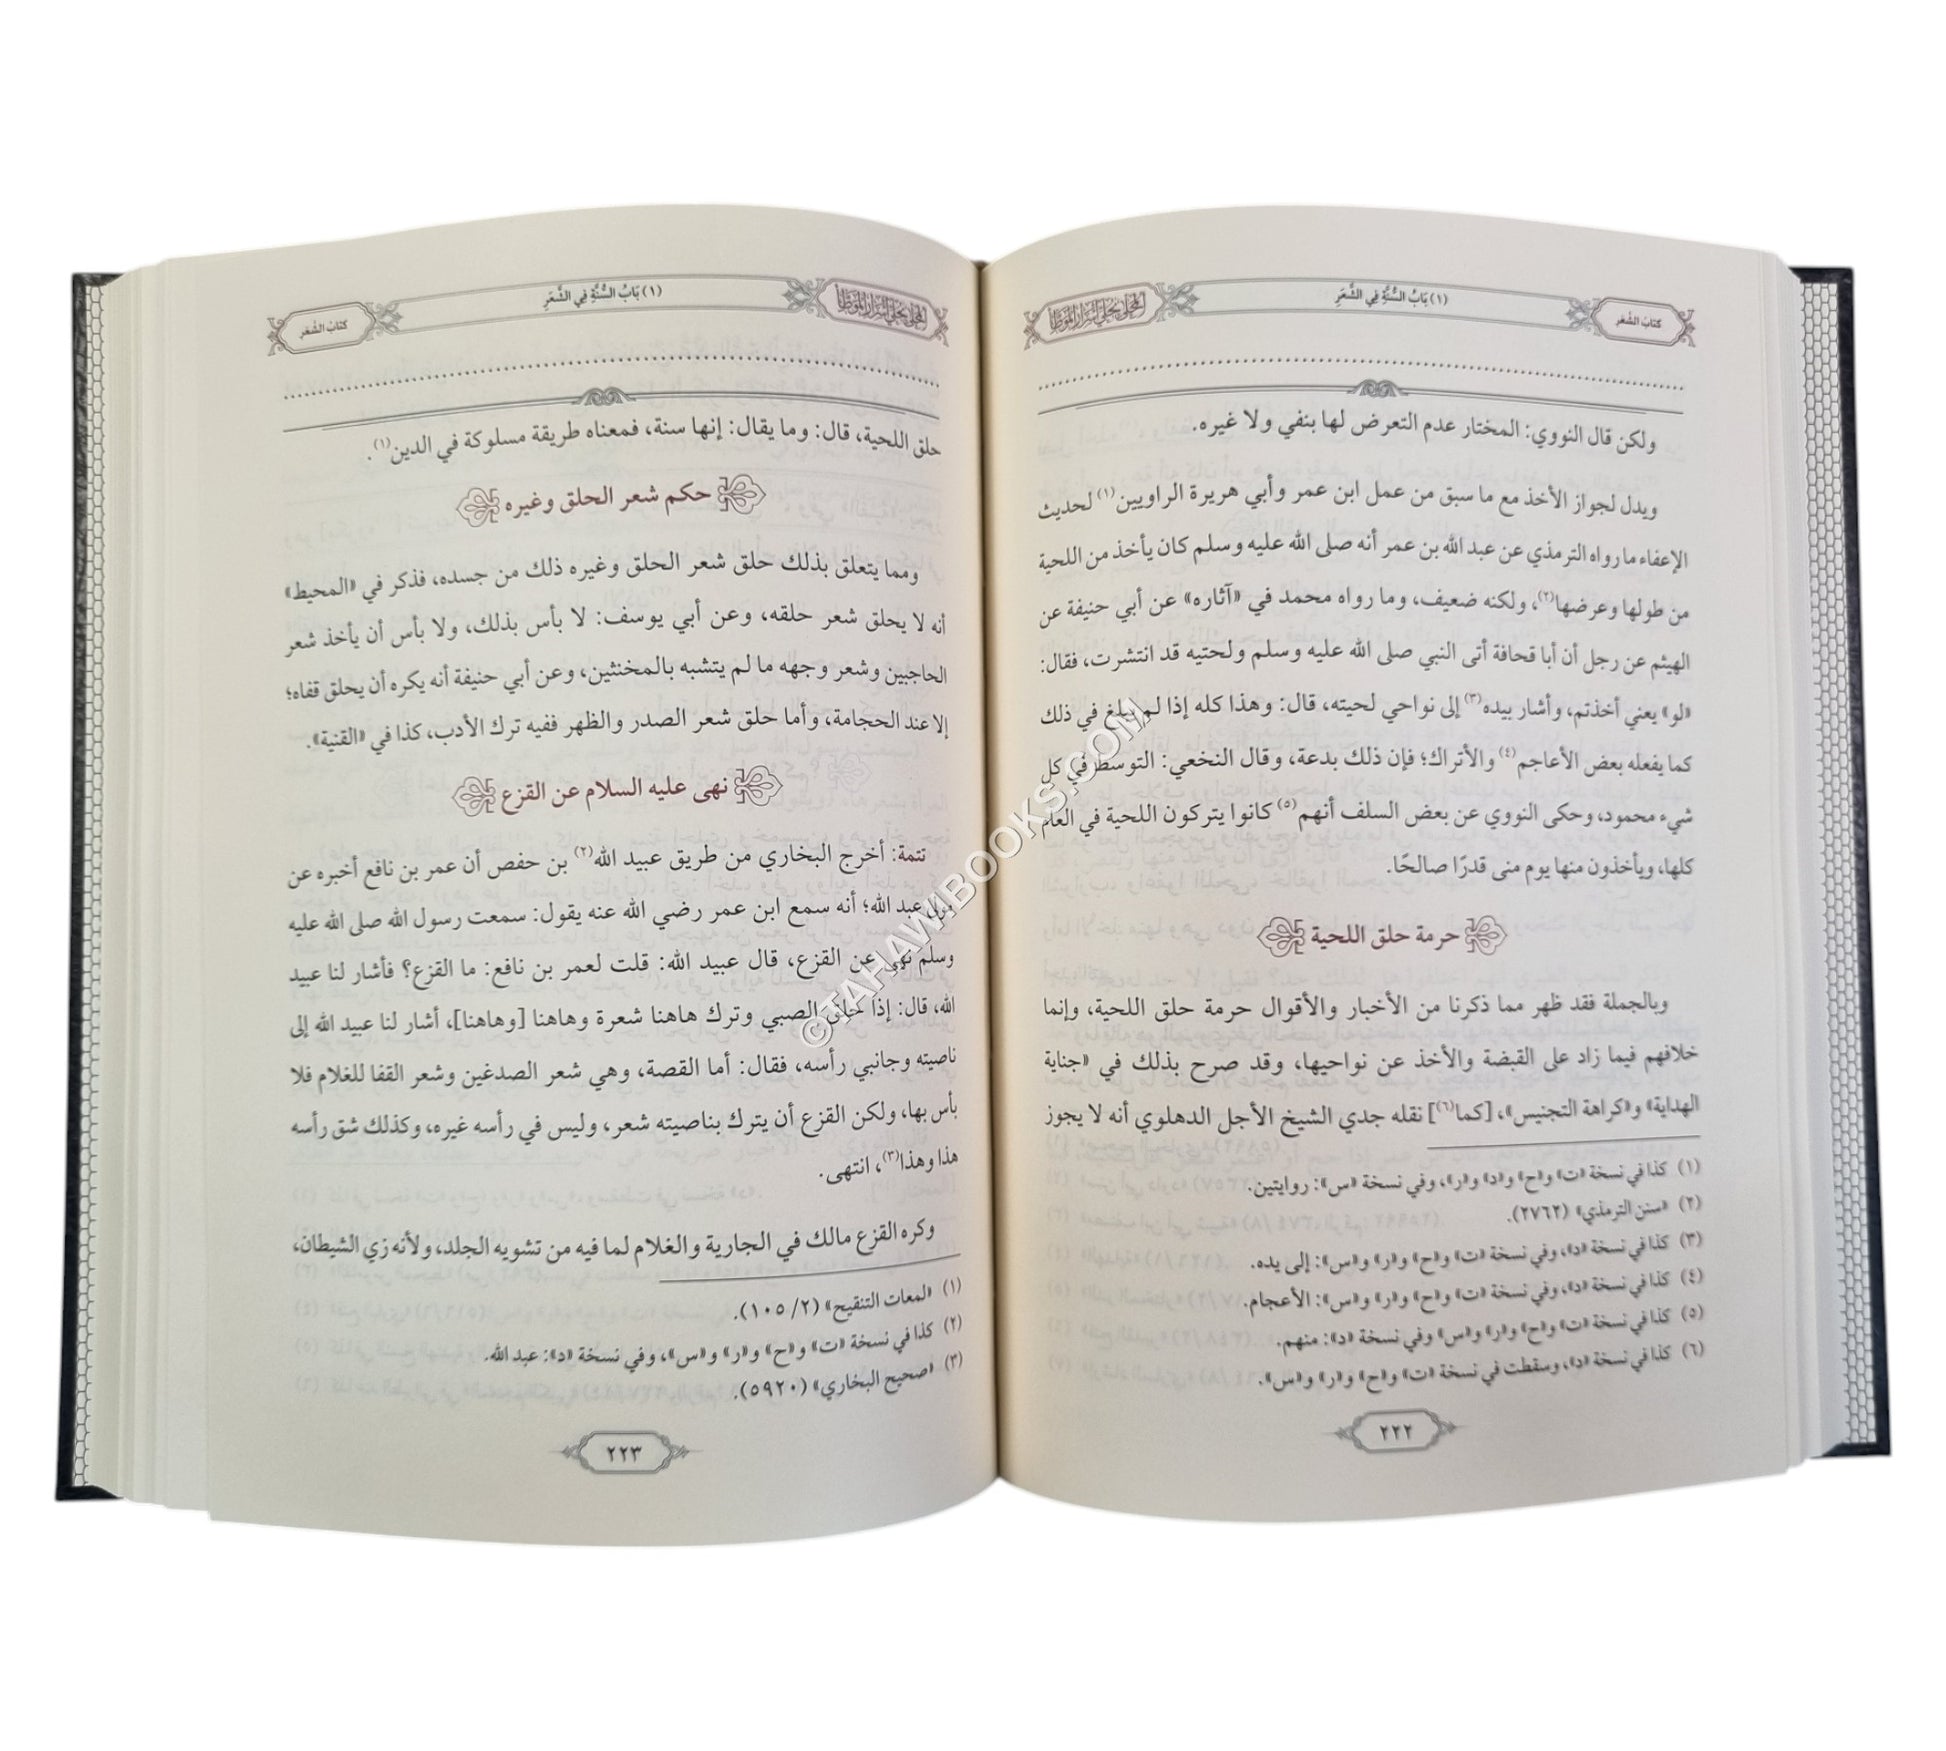 كتاب الشعر
(١) بَابُ السُّنَّةِ فِي الشَّعَرِ
المحلى بحلي أسرار الموطأ
ولكن قال النووي: المختار عدم التعرض لها بنفي ولا غيره.
ويدل لجواز الأخذ مع ما سبق من عمل ابن عمر وأبي هريرة الراويين(١) لحديث
الإعفاء ما رواه الترمذي عن عبد الله بن عمر أنه صلى الله عليه وسلم كان يأخذ من اللحية
من طولها وعرضها(٢)، ولكنه ضعيف، وما رواه محمد في «آثاره» عن أبي حنيفة عن
الهيثم عن رجل أن أبا قحافة أتى النبي صلى الله عليه وسلم ولحتيه قد انتشرت، فقال:
«لو» يعني أخذتم، وأشار بيده(٣) إلى نواحي لحيته، قال: وهذا كله إذا لم يبلغ في ذلك
كما يفعله بعض الأعاجم(٤) والأتراك؛ فإن ذلك بدعة، وقال النخعي: التوسط في كل
شيء محمود، وحكى النووي عن بعض السلف أنهم(٥) كانوا يتركون اللحية في العام
كلها، ويأخذون منها يوم منى قدرًا صالحًا.
حرمة حلق اللحية
وبالجملة فقد ظهر مما ذكرنا من الأخبار والأقوال حرمة حلق اللحية، وإنما
خلافهم فيما زاد على القبضة والأخذ عن نواحيها، وقد صرح بذلك في «جناية
الهداية» و«كراهة التجنيس»، [كما(٦)] نقله جدي الشيخ الأجل الدهلوي أنه لا يجوز
(١) كذا في نسخة «ت» و«ح» و«د» و«ر»، وفي نسخة «س»: روايتين.
(٢) «سنن الترمذي» (٢٧٦٢).
(٣) كذا في نسخة «د»، وفي نسخة «ت» و«ح» و«ر» و«س»: إلى يده.
(٤) كذا في نسخة «د»، وفي نسخة «ت» و«ح» و«ر» و«س»: الأعجام.
(٥) كذا في نسخة «ت» و«ح» و«ر» و«س» وفي نسخة «د»: منهم.
(٦) كذا في نسخة «د»، وسقطت في نسخة «ت» و«ح» و«ر» و«س».
٢٢٢
المحلى بحلي أسرار الموطأ
(١) بَابُ السُّنَّةِ فِي الشَّعَرِ
كتاب الشعر
حلق اللحية، قال: وما يقال: إنها سنة، فمعناه طريقة مسلوكة في الدين(١).
حكم شعر الحلق وغيره
ومما يتعلق بذلك حلق شعر الحلق وغيره ذلك من جسده، فذكر في «المحيط»
أنه لا يحلق شعر حلقه، وعن أبي يوسف: لا بأس بذلك، ولا بأس أن يأخذ شعر
الحاجبين وشعر وجهه ما لم يتشبه بالمخنثين، وعن أبي حنيفة أنه يكره أن يحلق قفاه؛
إلا عند الحجامة، وأما حلق شعر الصدر والظهر ففيه ترك الأدب، كذا في «القنية».
نهى عليه السلام عن القزع
تتمة: أخرج البخاري من طريق عبيد الله(٢) بن حفص أن عمر بن نافع أخبره عن
مولى عبد الله؛ أنه سمع ابن عمر رضي الله عنه يقول: سمعت رسول الله صلى الله عليه
وسلم نهى عن القزع، قال عبيد الله: قلت لعمر بن نافع: ما القزع؟ فأشار لنا عبيد
الله، قال: إذا حلق الصبي وترك هاهنا شعرة وهاهنا [وهاهنا]، أشار لنا عبيد الله إلى
ناصيته وجانبي رأسه، فقال: أما القصة، وهي شعر الصدغين وشعر القفا للغلام فلا
بأس بها، ولكن القزع أن يترك بناصيته شعر، وليس في رأسه غيره، وكذلك شق رأسه
هذا وهذا(٣)، انتهى.
وكره القزع مالك في الجارية والغلام لما فيه من تشويه الجلد، ولأنه زي الشيطان،
(١) «لمعات التنقيح» (٢/ ١٠٥).
(٢) كذا في نسخة «ت» و«ح» و«ر» و«س»، وفي نسخة «د»: عبد الله.
(٣) «صحيح البخاري» (٥٩٢٠).
٢٢٣
©TAHAWIBOOKS.COM